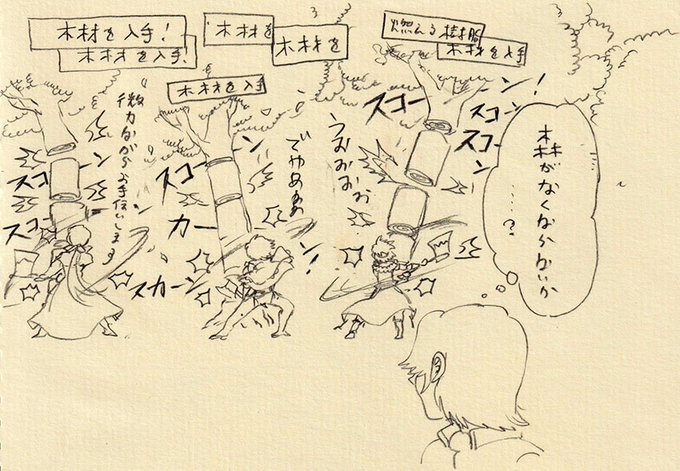 木材を入手!
木材を入手!
木材を
木材を
木材を入手
燃える樹脂
木材を入手
微力ながらお手伝いします
スコーン
スコーン
スカーン
スカーン!
でやぁぁぁ
うおおおお
スコーン!
スコーン
森がなくならないか
……?